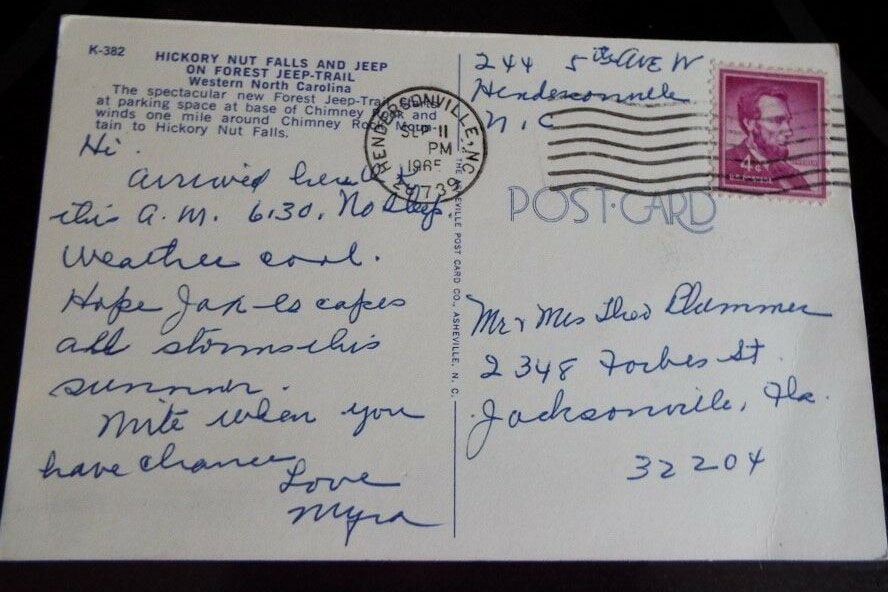 K-382
HICKORY NUT FALLS AND JEEP
ON FOREST JEEP-TRAIL
Western North Carolina
The spectacular new Forest Jeep-Trail
at parking space at base of Chimney and
winds one mile around Chimney Rock Moun-
tain to Hickory Nut Falls.
Hi.
arrived here
this A.M. 6:30. No sleep.
Weather cool.
Hope Jax escapes
all storms this
summer.
Write when you
have chance
Love
Myra
THE ASHEVILLE POST CARD CO., ASHEVILLE, N. C.
244 5th AVE W
Hendersonville
N.C
HENDERSONVILLE, NC
SEP 11
PM
1965
28739
4¢
POST-CARD
Mr & Mrs Theo Plummer
2348 Forbes St.
Jacksonville, Fla.
32204